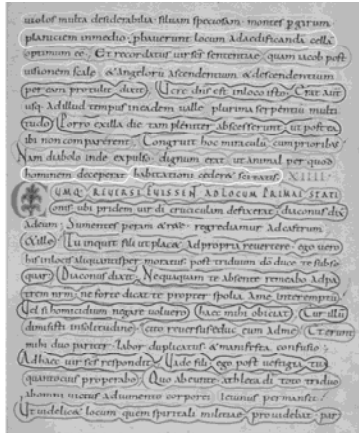 uiolos multa desiderabilia. siluam speciosam. montes p girum
planiciem in medio. placuerunt locum ad aedificandā cellā
optimum eē. Et recordatus uir sēr sententiae. quam iacob post
uisionem scale. & angelorū ascendentium & descendentium
per eam protulit. dixit. Uere dn̄s est in loco isto. Erat aut
usq. ad illud tempus in eadem ualle plurima serpentiū multi
tudo. Porro ex illa die tam pleniter abscesserunt. ut post ea
ibi non comparerent. Congruit hoc miraculū cum prioribus
Nam diabolo inde expulso. dignum erat. ut animal per quod
hominem deceperat. habitationi cederet seruatoris. XIIII.
CUMQ. REUERSI FUISSENT AD LOCUM PRIMAE STATI
onis ubi pridem uir dī cruciculam defixerat. diaconus dix
ad eum. Sumentes peram & rete. regrediamur ad castrum
Et ille. Tu inquit fili ut placet. ad propria reuertere. ego uero
his in locis aliquantisper moratus post triduum dō duce te subse
quar. Diaconus dixit. Nequaquam te absente remeabo ad pa
trem nrm. ne forte dicat te propter spolia a me interemptū.
Uel si homicidium negare uoluero. haec mihi obiciat. Cur illū
dimisisti in solitudine. cito reuersus es huc cum ad me. Et erunt
mihi duo pariter. labor duplicatus. & manifesta confusio.
Ad haec uir sēr respondit. Uade fili. ego post uestigia tua
quantocius properabo. Quo abeunte. athleta dī toto triduo
ab omni motus adiumento corporei. ieiunus permansit.
Ut uidelicet locum quem spiritali militiae prouidebat. par